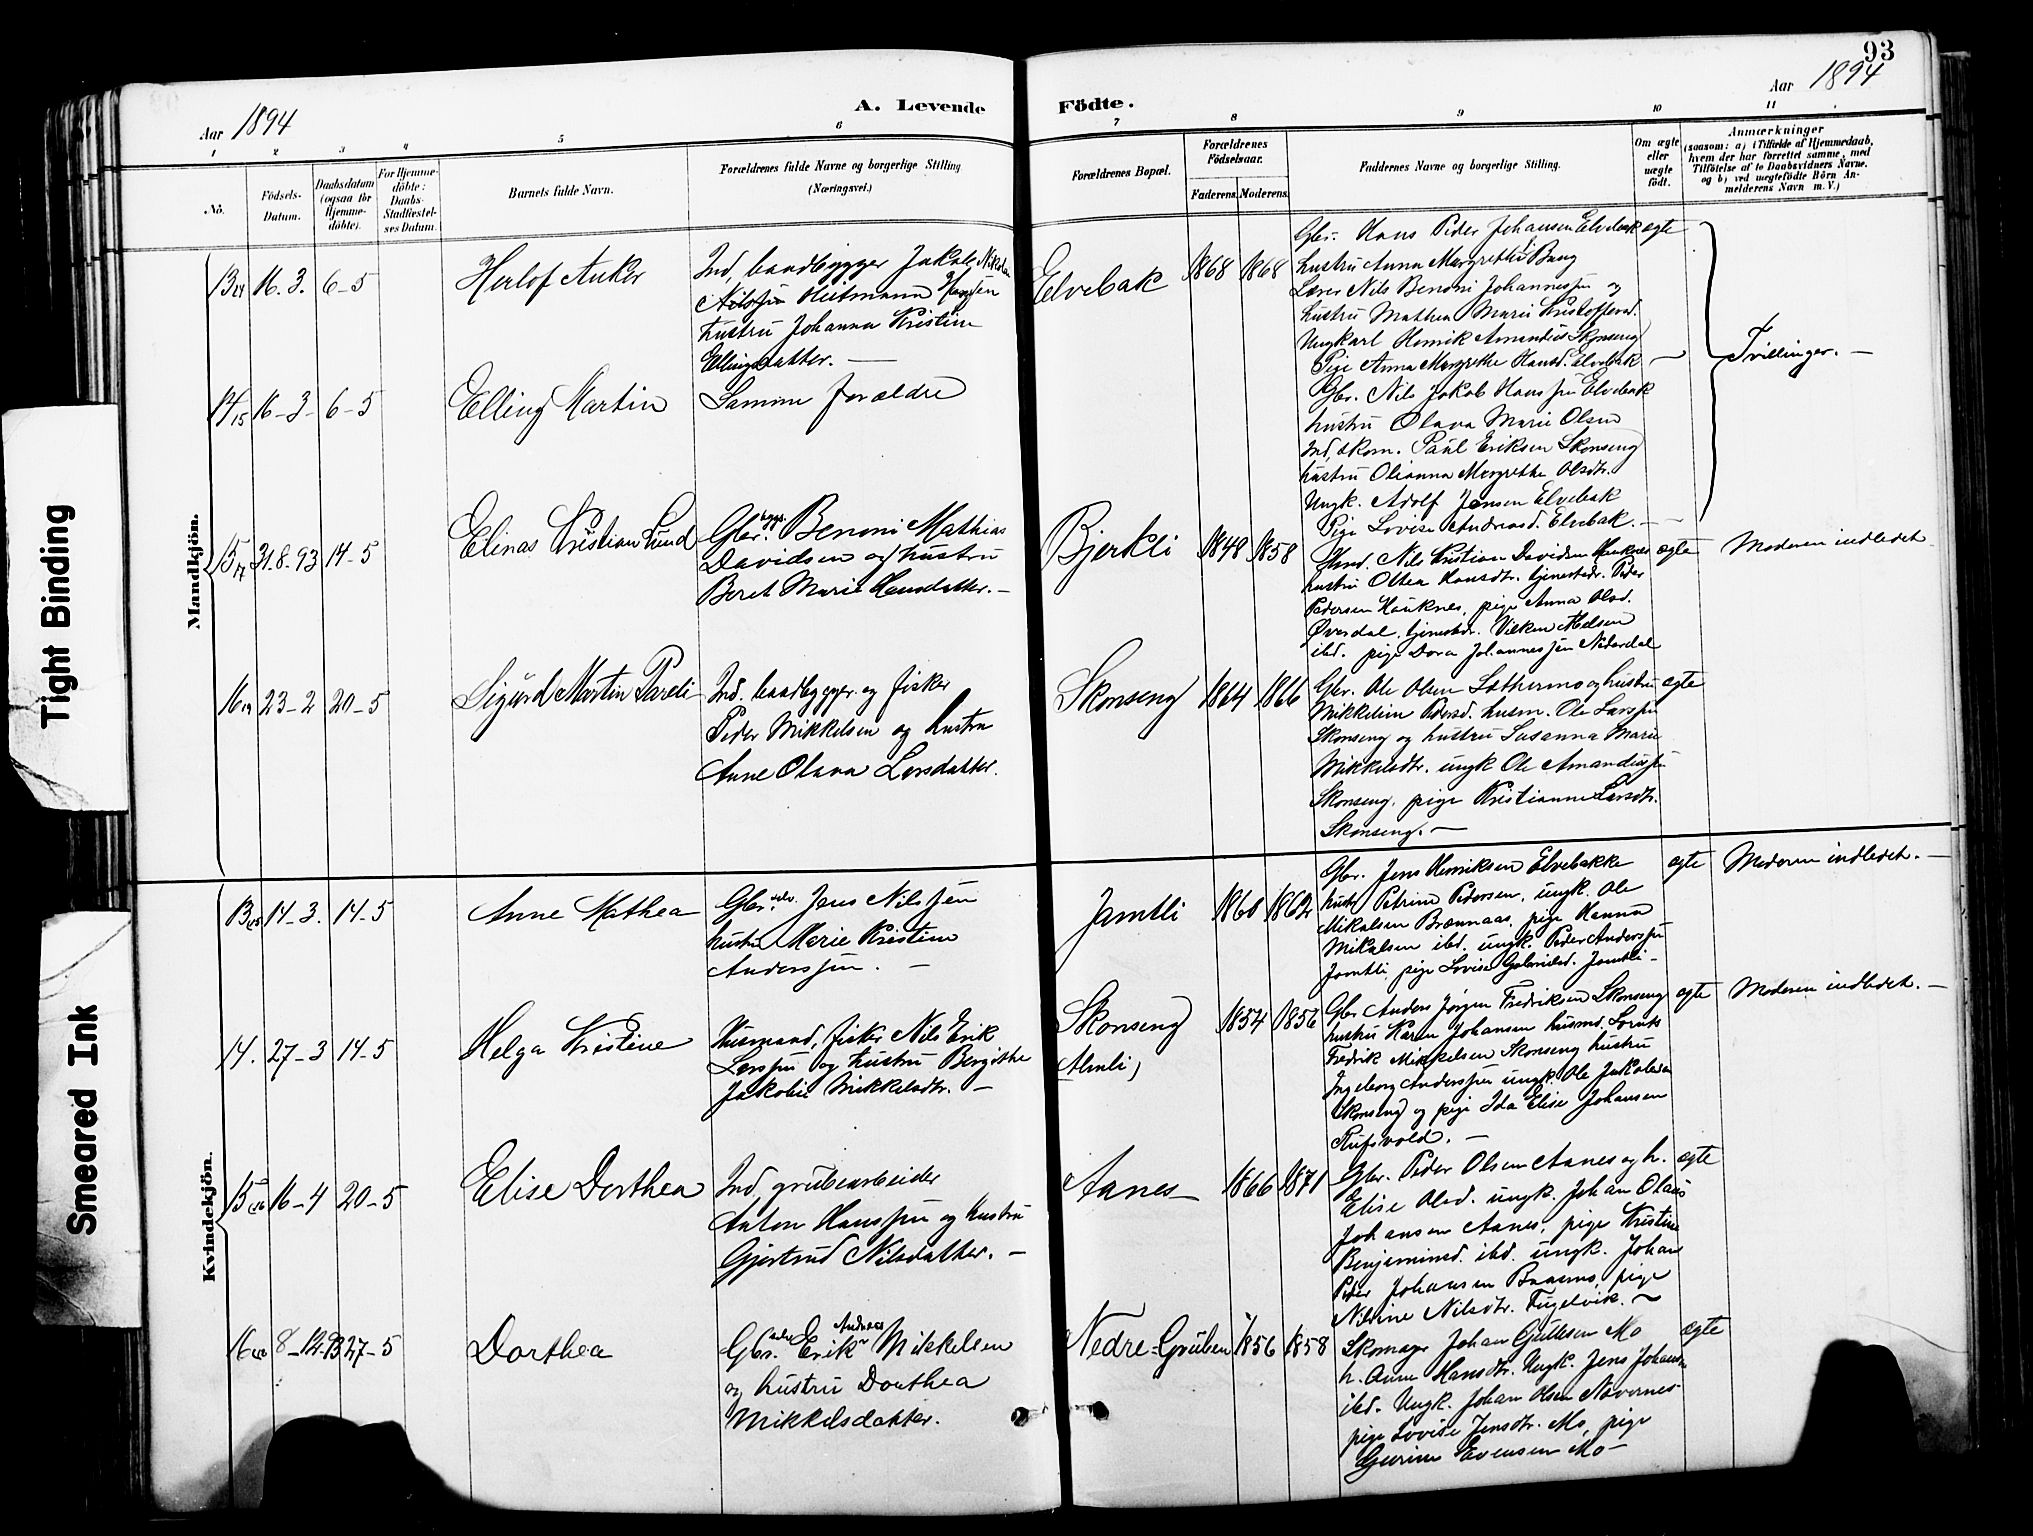 93
Aar 1894
A. Levende Födte.
Aar 1894
1 2 3 4 5 6 7 8 9 10 11
No.
Födsels-
Datum.
Daabsdatum
(ogsaa for
Hjemme-
döbte).
For Hjemme-
döbte:
Daabs-
Stadfæstel-
ses Datum.
Barnets fulde Navn.
Forældrenes fulde Navne og borgerlige Stilling
(Næringsvei.)
Forældrenes Bopæl.
Forældrenes
Födselsaar.
Faderens. Moderens.
Faddernes Navne og borgerlige Stilling.
Om ægte
eller
uægte
födt.
Anmærkninger
(saasom: a) i Tilfælde af Hjemmedaab,
hvem der har forrettet samme, med
Tilföielse af to Daabsvidners Navne.
og b) ved uægtefödte Börn An-
melderens Navn m. V.)
Mandkjön.
13 16. 3. 6-5
Herlof Anker
Ind, baadbygger Jakob Nikolai
Heitmann Hansen
hustru Johanna Kristine
Ellingsdatter. —
Elvebak
1868 1868
Gbr. Hans Peder Johansen Elvebak
hustru Anna Margrethe Bang
Lærer Nils Benoni Johannessen og
hustru Mathea Marie Kristoffersd.
Ungkarl Henrik Amandus Skonseng
Pige Anna Margrethe Hansd. Elvebak
ægte
Tvillinger. —
14/15 16-3- 6-5
Elling Martin
Samme forældre
Gbr. Nils Jakob Hanssen Elvebak
hustru Olava Marie Olsen
Ind, skom. Paul Eriksen Skonseng
hustru Olianna Margrethe Olsdtr.
Ungk. Adolf Jensen Elvebak
Pige Lovise Andreasd. Elvebak. —
15 31-8-93 14-5
Elinas Kristian Lund
Gbr. Benoni Mathias
Davidsen og hustru
Beret Marie Hansdatter. —
Bjerkli
1848 1858
Nils Kristian Davidsen Hauknes
hustru Oltea Hansdtr. tjenestedr. Peder
Pedersen Hauknes, pige Anna Olsd.
Øverdal, tjenestdr. Vilken Nielsen
ibd. pige Dora Johannessen Nederdal
ægte
Moderen indledet
16 23-2 20-5
Sigurd Martin Pareli
Ind. baadbygger og fisker
Peder Mikkelsen og hustru
Anne Olava Larsdatter.
Skonseng
1864 1866
Gbr. Ole Olsen Sæthermo og hustru
Mikkeline Pedersd. husm. Ole Larssen
Skonseng og hustru Susanna Marie
Mikkelsdtr. ungk Ole Amandussen
Skonseng, pige Kristianne Larsdtr.
Skonseng. —
ægte
Kvindekjön.
13 14-3. 14-5
Anne Mathea
Gbr. Jens Nilssen
hustru Marie Kristine
Anderssen. —
Jamtli
1860 1862
Gbr. Jens Henriksen Elvebakke
hustr Petrine Pedersen, ungk. Ole
Mikalsen Brennaas, pige Hanna
Mikalsen ibd. ungk. Peder Anderssen
Jamtli pige Lovise Gabrielsd. Jamtli —
ægte
Moderen indledet. —
14. 27-3 14-5
Helga Kristine
Husmand, fisker Nils Erik
Larssen og hustru Bergithe
Jakobie Mikkelsdtr. —
Skonseng
(Almli)
1854 1856
Gbr Anders Jørgen Fredriksen Skonseng
hustru Karen Johansen husmd. Lornts
Fredrik Mikkelsen Skonseng hustru
Ingeborg Anderssen ungk. Ole Jakobsen
Skonseng og pige Ida Elise Johansen
Rufsvold. —
ægte
Moderen indledet. —
15 16-4 20-5
Elise Dorthea
Ind, grubearbeider
Anton Hanssen og hustru
Gjertrud Nilsdatter. —
Aanes
1866 1871
Gbr. Peder Olsen Aanes og h.
Elise Olsd. ungk. Johan Olaus
Johansen Aanes, pige Kristine
Benjaminsd. ibd. ungk. Johan
Peder Johansen Baasmo, pige
Nilsine Nilsdtr. Fugelvik. —
ægte
16 8-12-93 27-5
Dorthea
Gbr. Erik Andreas Mikkelsen
og hustru Dorthea
Mikkelsdatter.
Nedre-Gruben
1856 1858
Skomager Johan Gullesen Mo
h. Anne Hansdtr. Ungk. Jens Johansen
ibd. Ungk. Johan Olsen Navernes
pige Lovise Jensdtr. Mo, pige
Gurine Evensen Mo —
ægte
Tight Binding
Smeared Ink